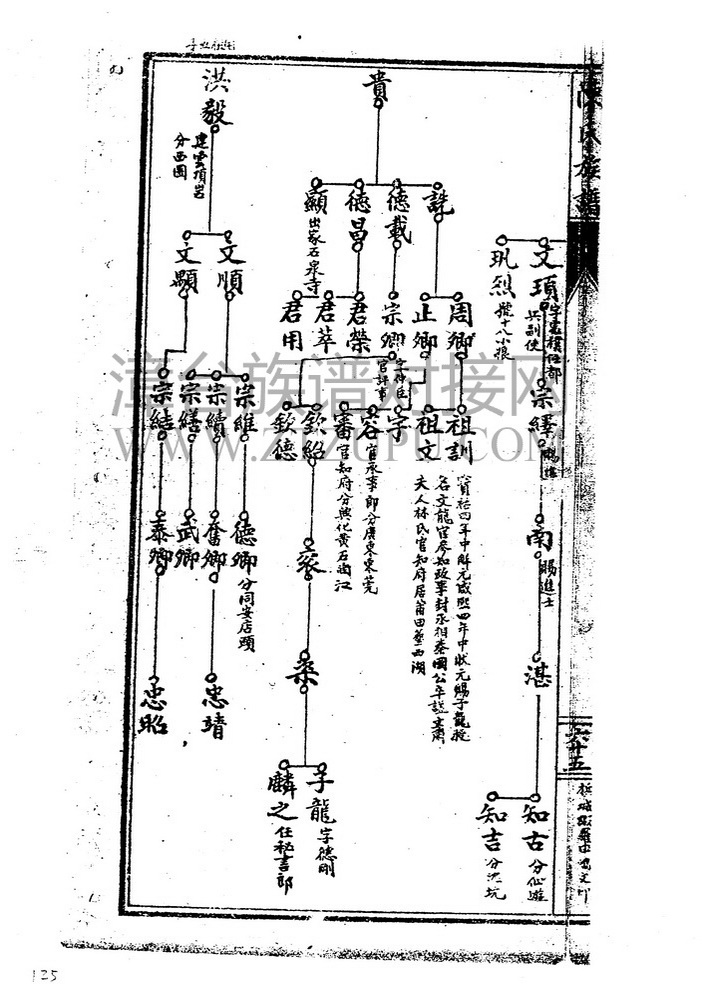 陳氏族譜
六十五
文頊
巩烈
宗繹
南
賜進士
湛
知古
分仙遊
知吉
分沈坑
貴
詵
德載
德昌
顯
出家石泉寺
周卿
止卿
宗卿
字仲臣
官評事
君榮
君萃
君用
祖訓
祖文
寶祐四年中解元咸熙四年中狀元賜子龍授
名文龍官參知政事封丞相秦國公卒謚
夫人林氏官知府居莆田
宇
容
官承事郎分廣東東莞
審
官知府分興化黃石
欽紹
欽德
子龍
字德剛
麟之
任秘書郎
洪毅
建雲項岩
分西園
文順
文顯
宗維
宗續
宗繕
宗結
德卿
分同安店頭
奮卿
武卿
泰卿
忠靖
忠昭
漳台族谱对接网
WWW.ZTZUPU.COM
135